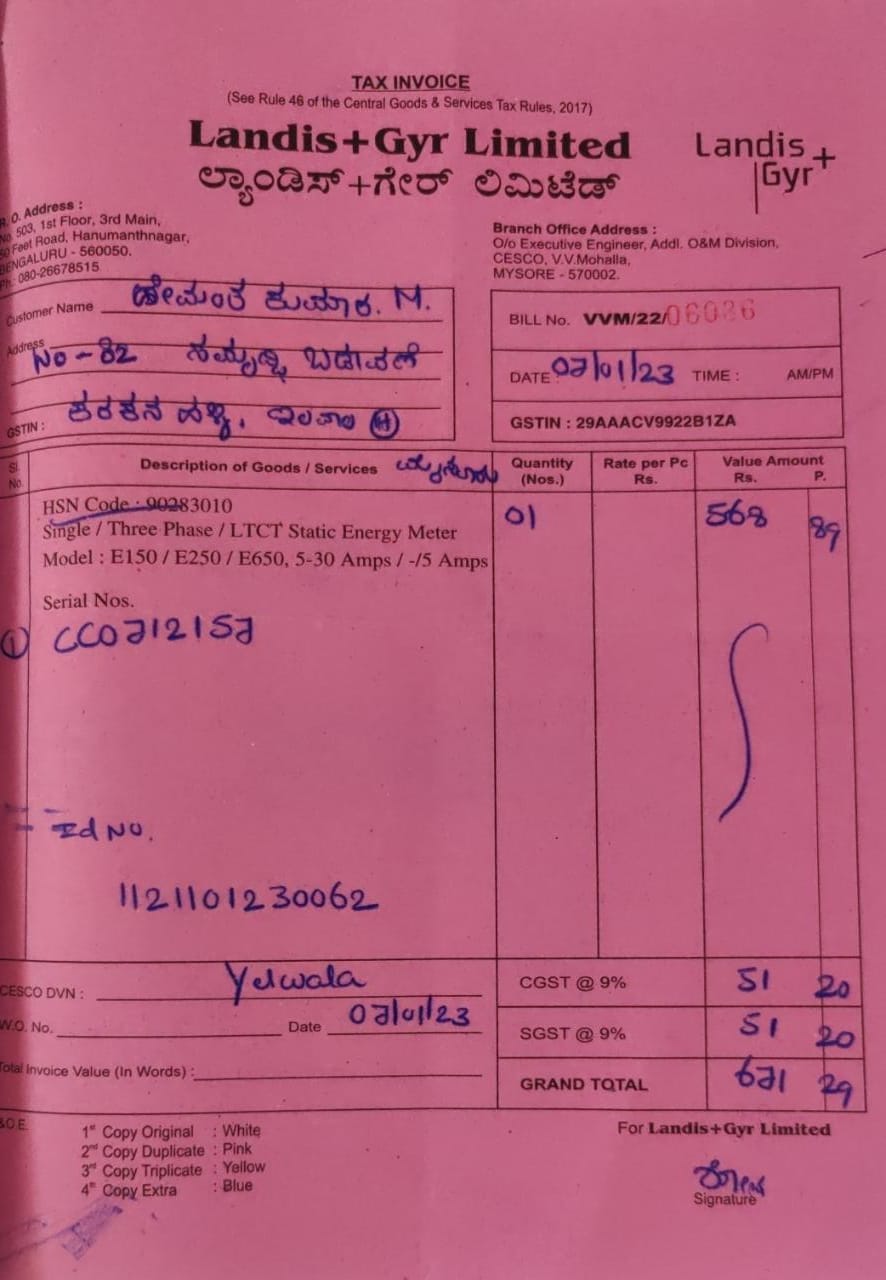 TAX INVOICE
(See Rule 46 of the Central Goods & Services Tax Rules, 2017)
Landis+Gyr Limited
ಲ್ಯಾಂಡಿಸ್+ಗೇರ್ ಲಿಮಿಟೆಡ್
Landis+ Gyr
R.O. Address :
No. 503, 1st Floor, 3rd Main,
Feet Road, Hanumanthnagar,
BENGALURU - 560050.
Ph: 080-26678515
Branch Office Address :
O/o Executive Engineer, Addl. O&M Division,
CESCO, V.V.Mohalla,
MYSORE - 570002.
Customer Name ಹೇಮಂತ ಕುಮಾರ. M.
Address No-82 ಸಮೃದ್ಧಿ ಬಡಾವಣೆ
GSTIN :
BILL No. VVM/22/06026
DATE : 07/01/23 TIME : AM/PM
GSTIN : 29AAACV9922B1ZA
Sl. No. Description of Goods / Services ಮೈಸೂರು Quantity (Nos.) Rate per Pc Rs. Value Amount Rs. P.
HSN Code : 90283010 01 568 89
Single / Three Phase / LTCT Static Energy Meter
Model : E150 / E250 / E650, 5-30 Amps / -/5 Amps
Serial Nos.
① CC0712157
Id No.
1121101230062
CESCO DVN : Yelwala
W.O. No. Date 07/01/23
Total Invoice Value (In Words) :
CGST @ 9% 51 20
SGST @ 9% 51 20
GRAND TOTAL 671 29
&O.E.
1st Copy Original : White
2nd Copy Duplicate : Pink
3rd Copy Triplicate : Yellow
4th Copy Extra : Blue
For Landis+Gyr Limited
Signature